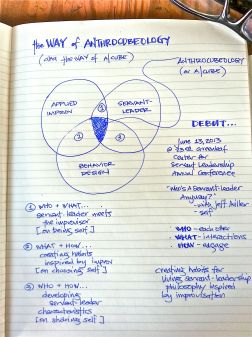 the WAY of ANTHROCUBEOLOGY
(aka the WAY of A|CUBE)
ANTHROCUBEOLOGY
(or A|CUBE)
APPLIED
IMPROV
SERVANT-
LEADER
①
②
③
BEHAVIOR
DESIGN
DEBUT...
June 23, 2013
Center for
Servant Leadership
Annual Conference
"Who's A Servant-Leader
Anyway?"
self
WHO - each other
WHAT - interactions
HOW - engage
① WHO + WHAT...
servant-leader meets
the improvisor
[on being self]
② WHAT + HOW...
creating habits
inspired by improv
[on choosing self]
③ WHO + HOW...
developing
servant-leader
characteristics
[on sharing self]
creating habits for
living servant-leadership
philosophy inspired
by improvisation